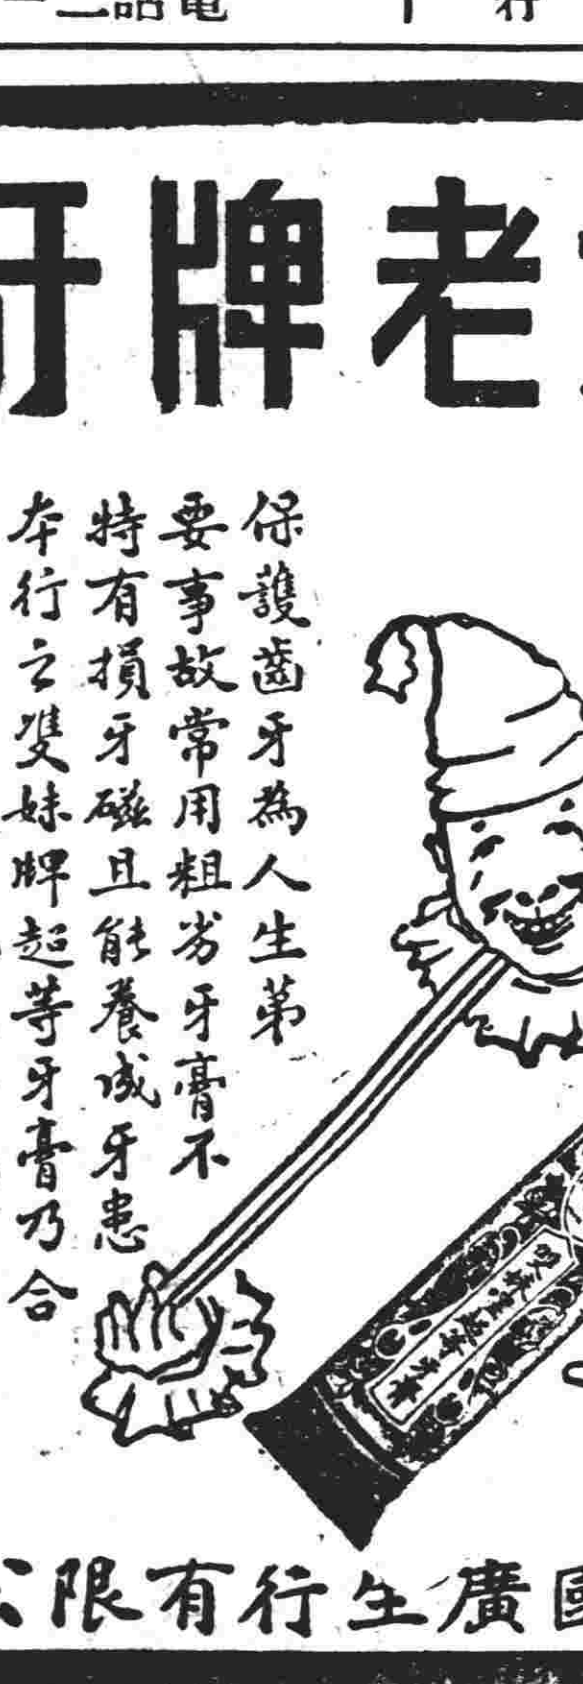 電話二
行
老牌牙
保護齒牙為人生第
要事故常用粗劣牙膏不
特有損牙磁且能養成牙患
本行之雙妹牌超等牙膏乃合
雙妹嘜超等牙膏
國廣生行有限公